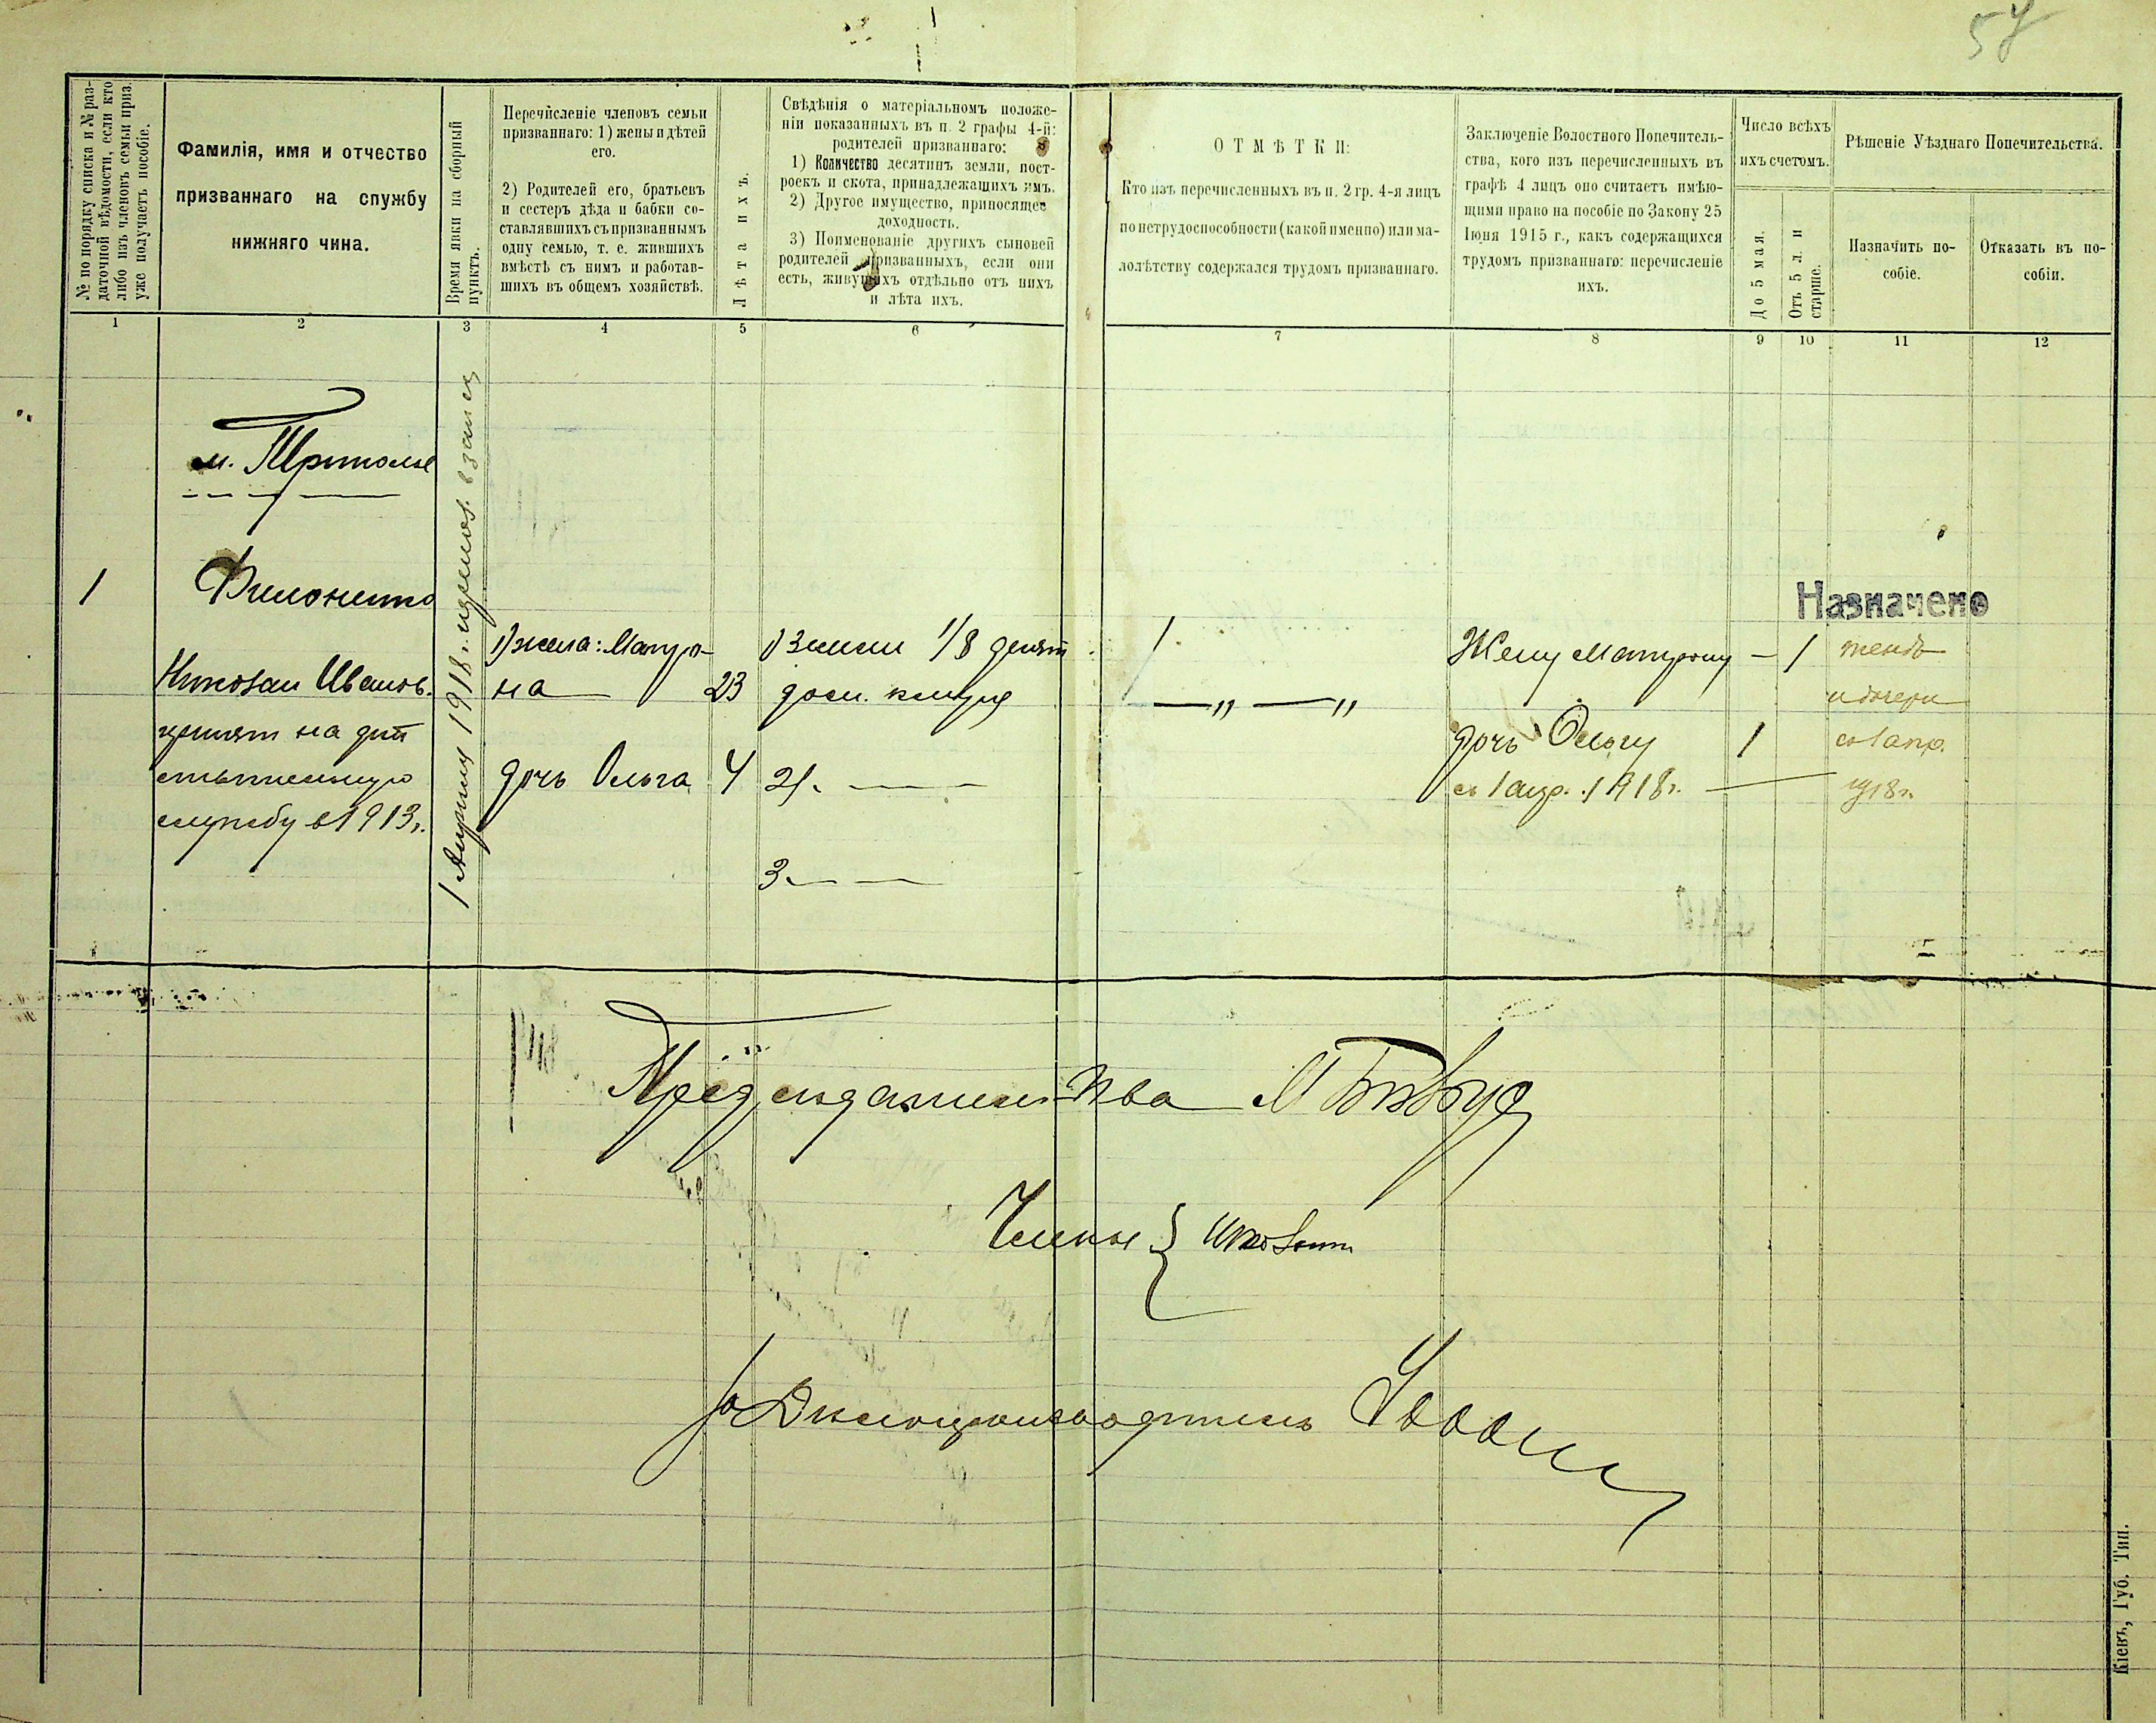 57
№ по порядку списка и № раз-
даточной вѣдомости, если кто
либо изъ членовъ семьи приз.
уже получаетъ пособіе.
Фамилія, имя и отчество
призваннаго на службу
нижняго чина.
Время явки на сборный
пунктъ.
Перечисленіе членовъ семьи
призваннаго: 1) жены и дѣтей
его.
2) Родителей его, братьевъ
и сестеръ дѣда и бабки со-
ставлявшихъ съ призваннымъ
одну семью, т. е. жившихъ
вмѣстѣ съ нимъ и работав-
шихъ въ общемъ хозяйствѣ.
Лѣта ихъ.
Свѣдѣнія о матеріальномъ положе-
ніи показанныхъ въ п. 2 графы 4-й:
родителей призваннаго:
1) Количество десятинъ земли, пост-
роекъ и скота, принадлежащихъ имъ.
2) Другое имущество, приносящее
доходность.
3) Поименованіе другихъ сыновей
родителей призванныхъ, если они
есть, живущихъ отдѣльно отъ нихъ
и лѣта ихъ.
ОТМѢТКИ:
Кто изъ перечисленныхъ въ п. 2 гр. 4-я лицъ
по нетрудоспособности (какой именно) или ма-
лолѣтству содержался трудомъ призваннаго.
Заключеніе Волостного Попечитель-
ства, кого изъ перечисленныхъ въ
графѣ 4 лицъ оно считаетъ имѣю-
щими право на пособіе по Закону 25
Іюня 1915 г., какъ содержащихся
трудомъ призваннаго: перечисленіе
ихъ.
Число всѣхъ
ихъ счетомъ.
До 5 мая.
Отъ 5 л. и
старше.
Рѣшеніе Уѣзднаго Попечительства.
Назначить по-
собіе.
Отказать въ по-
собіи.
1 2 3 4 5 6 7 8 9 10 11 12
м. Триполье
1 Филоненко
Николай Иванов.
принят на дѣй
ствительную
службу в 1913 г.
1 Апреля 1918 г.
1) жена: Матро-
на 23
дочь Ольга 4
1) Земли 1/8 десят
2) —
3 —
1
— „ — „
Жену Матрону — 1
дочь Ольгу 1
с 1 апр. 1918 г.
Назначено
женѣ
и дочери
с 1 апр.
1918 г.
Предсѣдатель
Члены
Дѣлопроизводитель
Кіевъ, Губ. Тип.